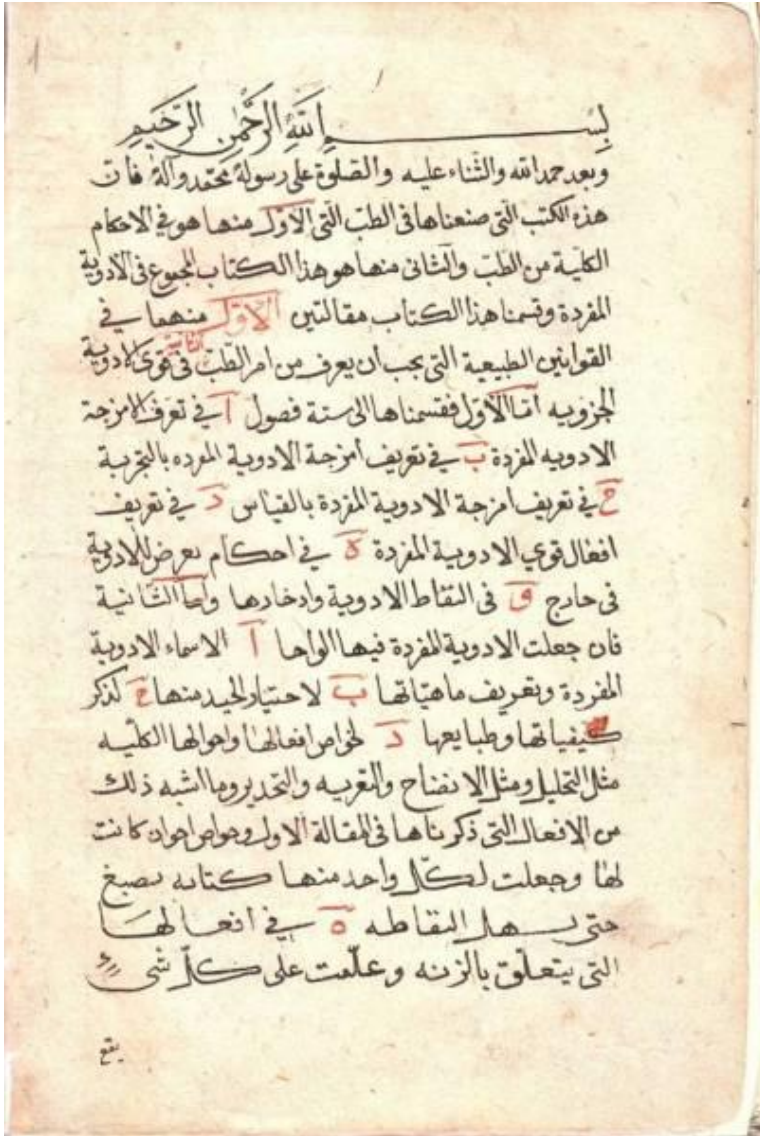 بسم الله الرحمن الرحيم
وبعد حمد الله والثناء عليه والصلوة على رسوله محمد وآله فان
هذه الكتب التى صنعناها فى الطب التى الاول منها هو في الاحكام
الكلية من الطب والثانى منها هو هذا الكتاب المجموع فى الادوية
المفردة وقسمنا هذا الكتاب مقالتين الاول منهما في
القوانين الطبيعية التى يجب أن يعرف من امر الطب الثانية فى قوى الادوية
الجزويه أما الاول فقسمناها الى ستة فصول أ في تعرف الامزجة
الادويه المفردة ب في تعريف أمزجة الادوية المفرده بالتجربة
ج في تعريف امزجة الادوية المفردة بالقياس د في تعريف
افعال قوي الادوية المفردة ه في احكام تعرض للادوية
فى خارج و فى التقاط الادوية وادخارها وأما الثانية
فان جعلت الادوية المفردة فيها الواحا أ الاسماء الادوية
المفردة وتعريف ماهيّاتها ب لاختيار الجيد منها ج لذكر
كيفياتها وطبايعها د لخواص افعالها واحوالها الكليه
مثل التحليل ومثل الانضاج والتغريه والتخدير وما اشبه ذلك
من الافعال التى ذكرناها فى المقالة الاول وخواص اخوان كانت
لها وجعلت لكل واحد منها كتابه بصبغ
حتى يسهل التقاطه ه في أفعالها
التى يتعلق بالزنه وعلمت على كل شى
يقع